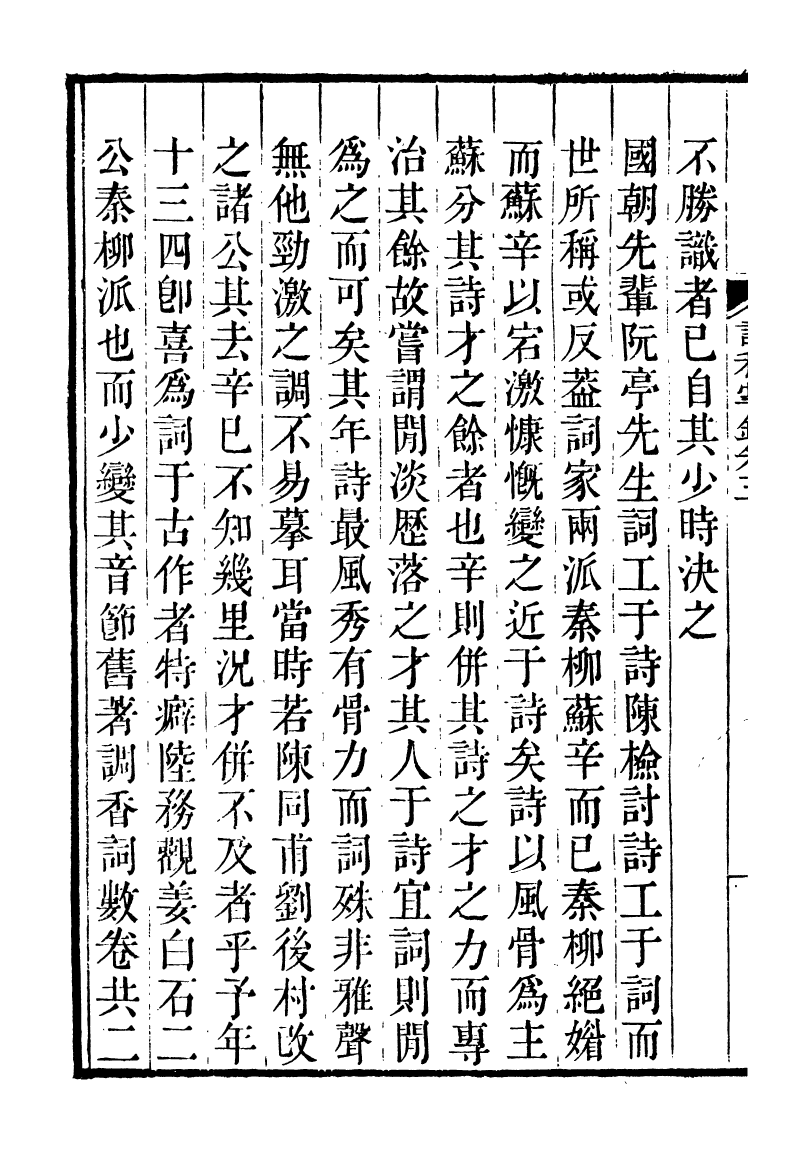 不勝識者已自其少時決之
國朝先輩阮亭先生詞工于詩陳檢討詩工于詞而
世所稱或反葢詞家兩派秦柳蘇辛而已秦柳絕媚
而蘇辛以宕激慷慨變之近于詩矣詩以風骨爲主
蘇分其詩才之餘者也辛則併其詩之才之力而專
治其餘故嘗謂閒淡歴落之才其人于詩宜詞則閒
爲之而可矣其年詩最風秀有骨力而詞殊非雅聲
無他勁激之調不易摹耳當時若陳同甫劉後村改
之諸公其去辛已不知幾里況才併不及者乎予年
十三四卽喜爲詞于古作者特癖陸務觀姜白石二
公秦柳派也而少變其音節舊著調香詞數卷共二